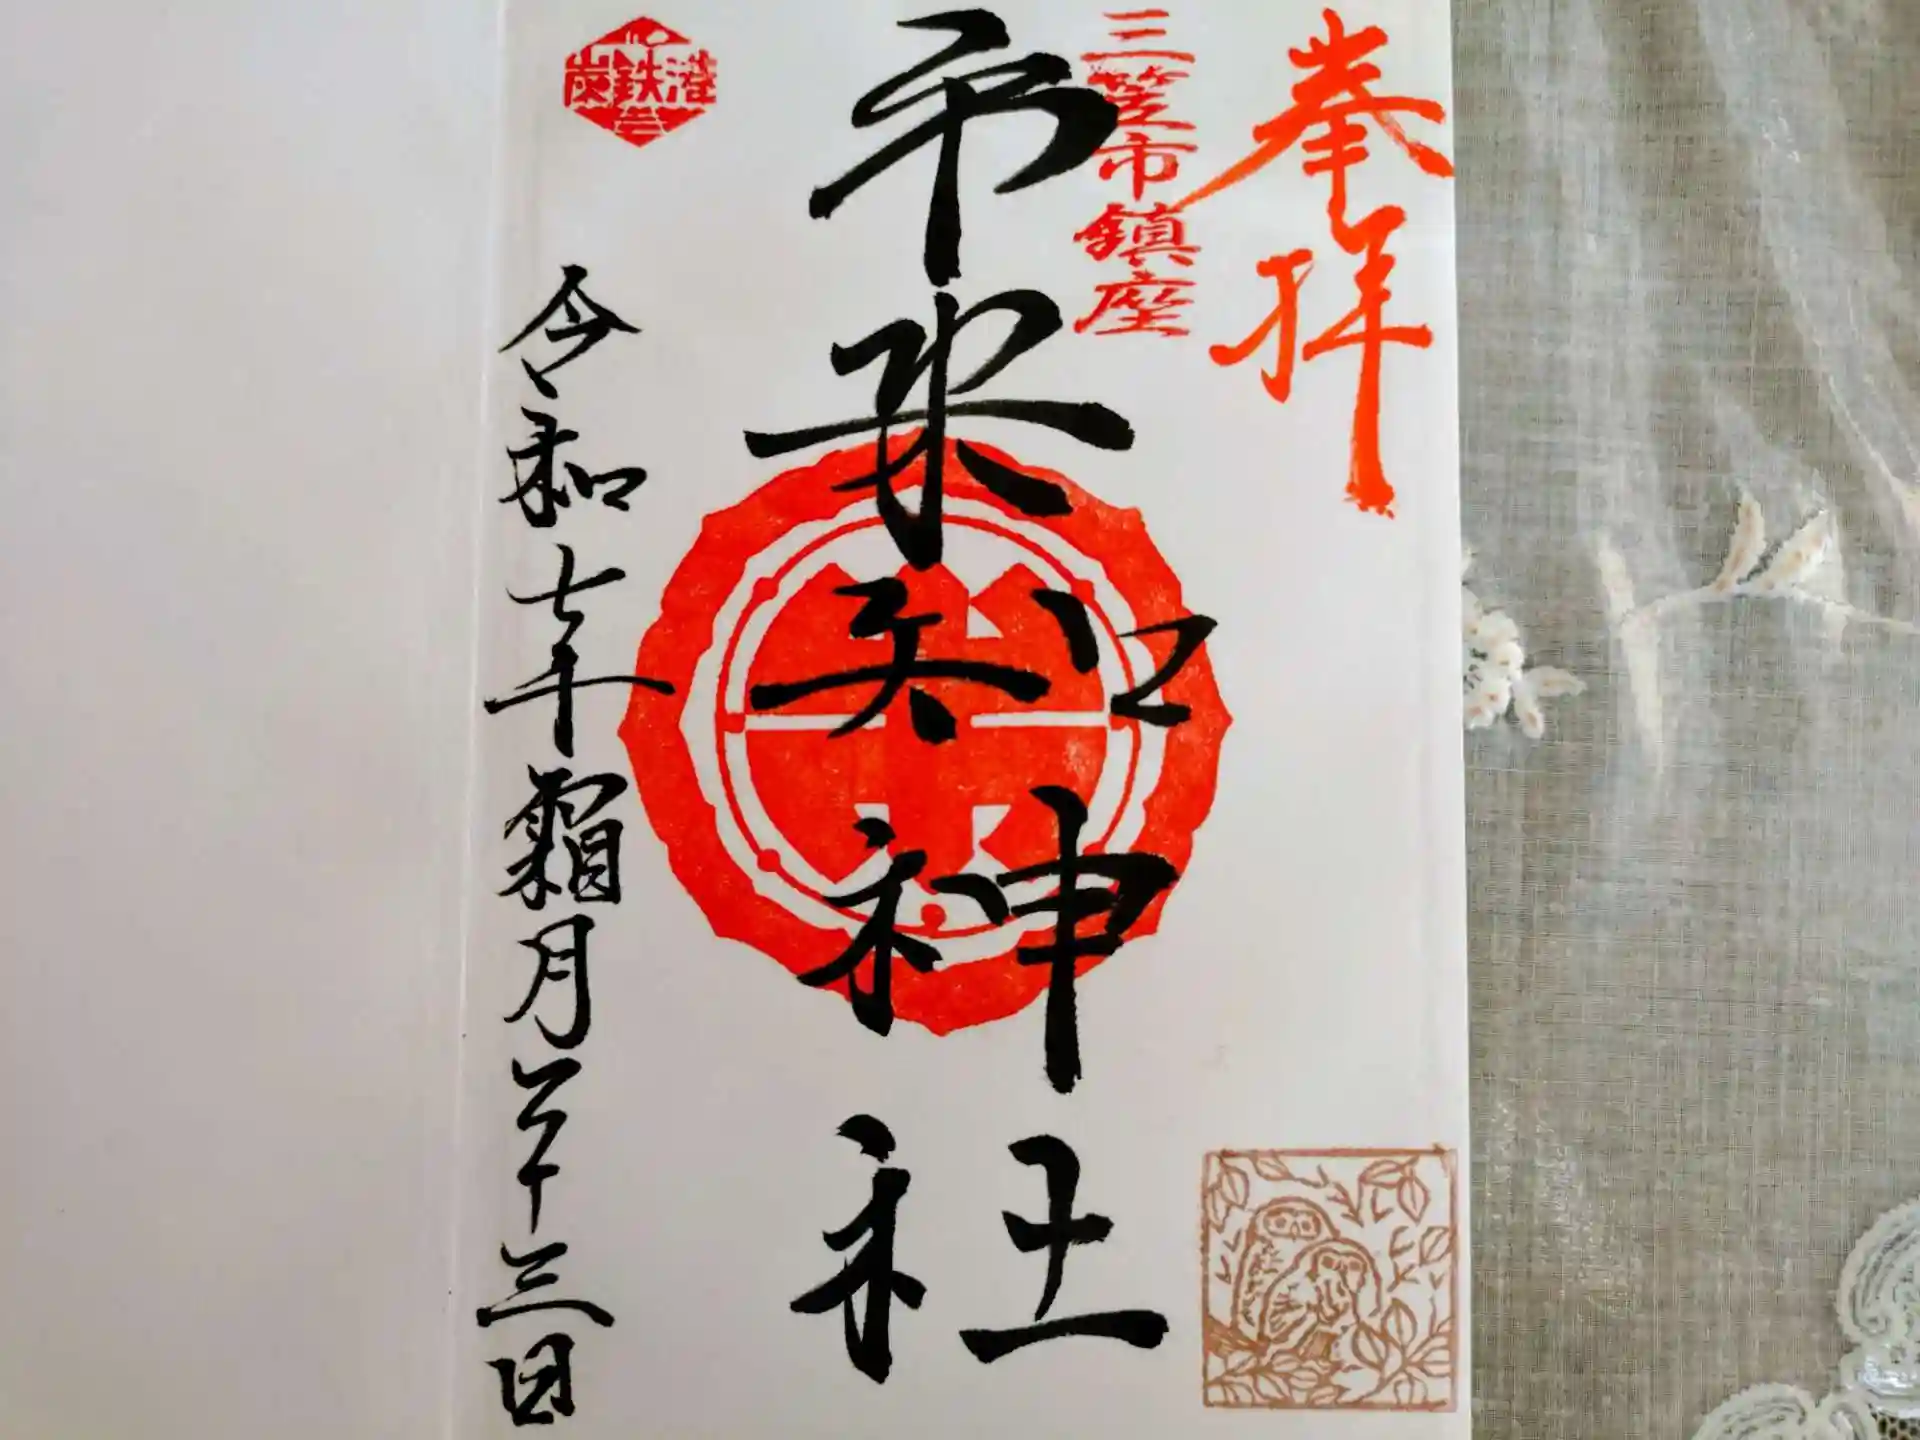 奉拝
三笠市鎮座
市来知神社
炭鉄港
令和七年霜月二十三日